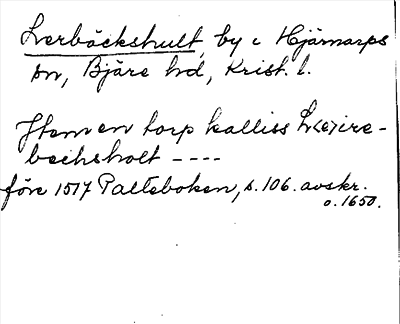 Lerbäckshult, by i Hjärnarps
sn, Bjäre hd, Krist. l.
Item en torp kalliss L<e>ire-
bechsholt ----
före 1517 Palteboken, s. 106. avskr.
o. 1650.